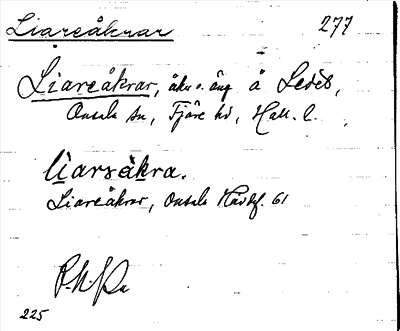 Liareåkrar 277
Liareåkrar, åkr o. äng å Ledet,
Onsala sn, Fjäre hd, Hall. l.
l̀iarsàkra.
Liareåkrar, Onsala Hävdf. 61
225